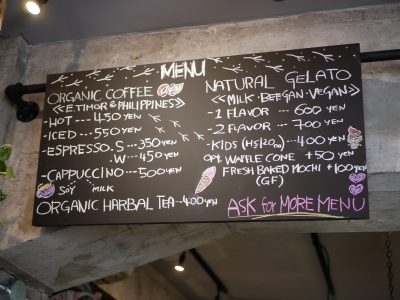 MENU
ORGANIC COFFEE
<<E.TIMOR & PHILIPPINES>>
-HOT ---- 450 YEN
-ICED --- 550 YEN
-ESPRESSO. S --- 350 YEN
. W --- 450 YEN
-CAPPUCCINO --- 500 YEN
SOY MILK
ORGANIC HARBAL TEA -- 400 YEN
NATURAL GELATO
<<MILK・BEEGAN・VEGAN>>
-1 FLAVOR --- 600 YEN
-2 FLAVOR --- 700 YEN
-KIDS --- 400 YEN
OPT. WAFFLE CONE +50 YEN
FRESH BAKED MOCHI +100 YEN
(GF)
ASK for MORE MENU